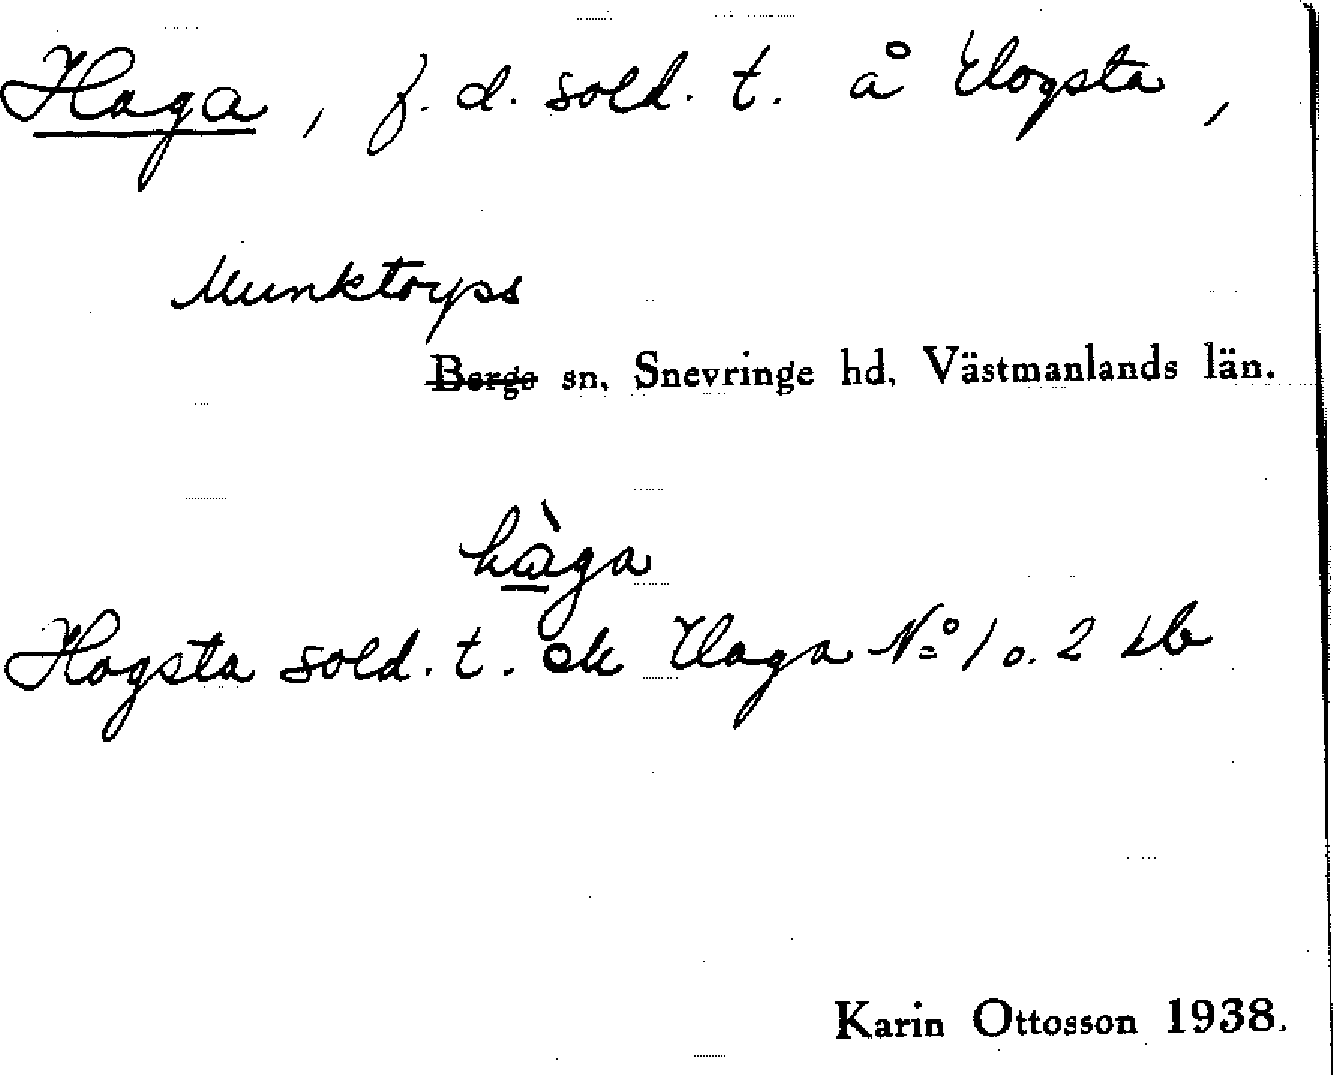 Haga, f. d. sold. t. å Hogsta,
Munktorps
Bergs sn, Snevringe hd, Västmanlands län.
hàga
Hogsta sold. t. ek Haga No 1 o. 2 
Karin Ottosson 1938.